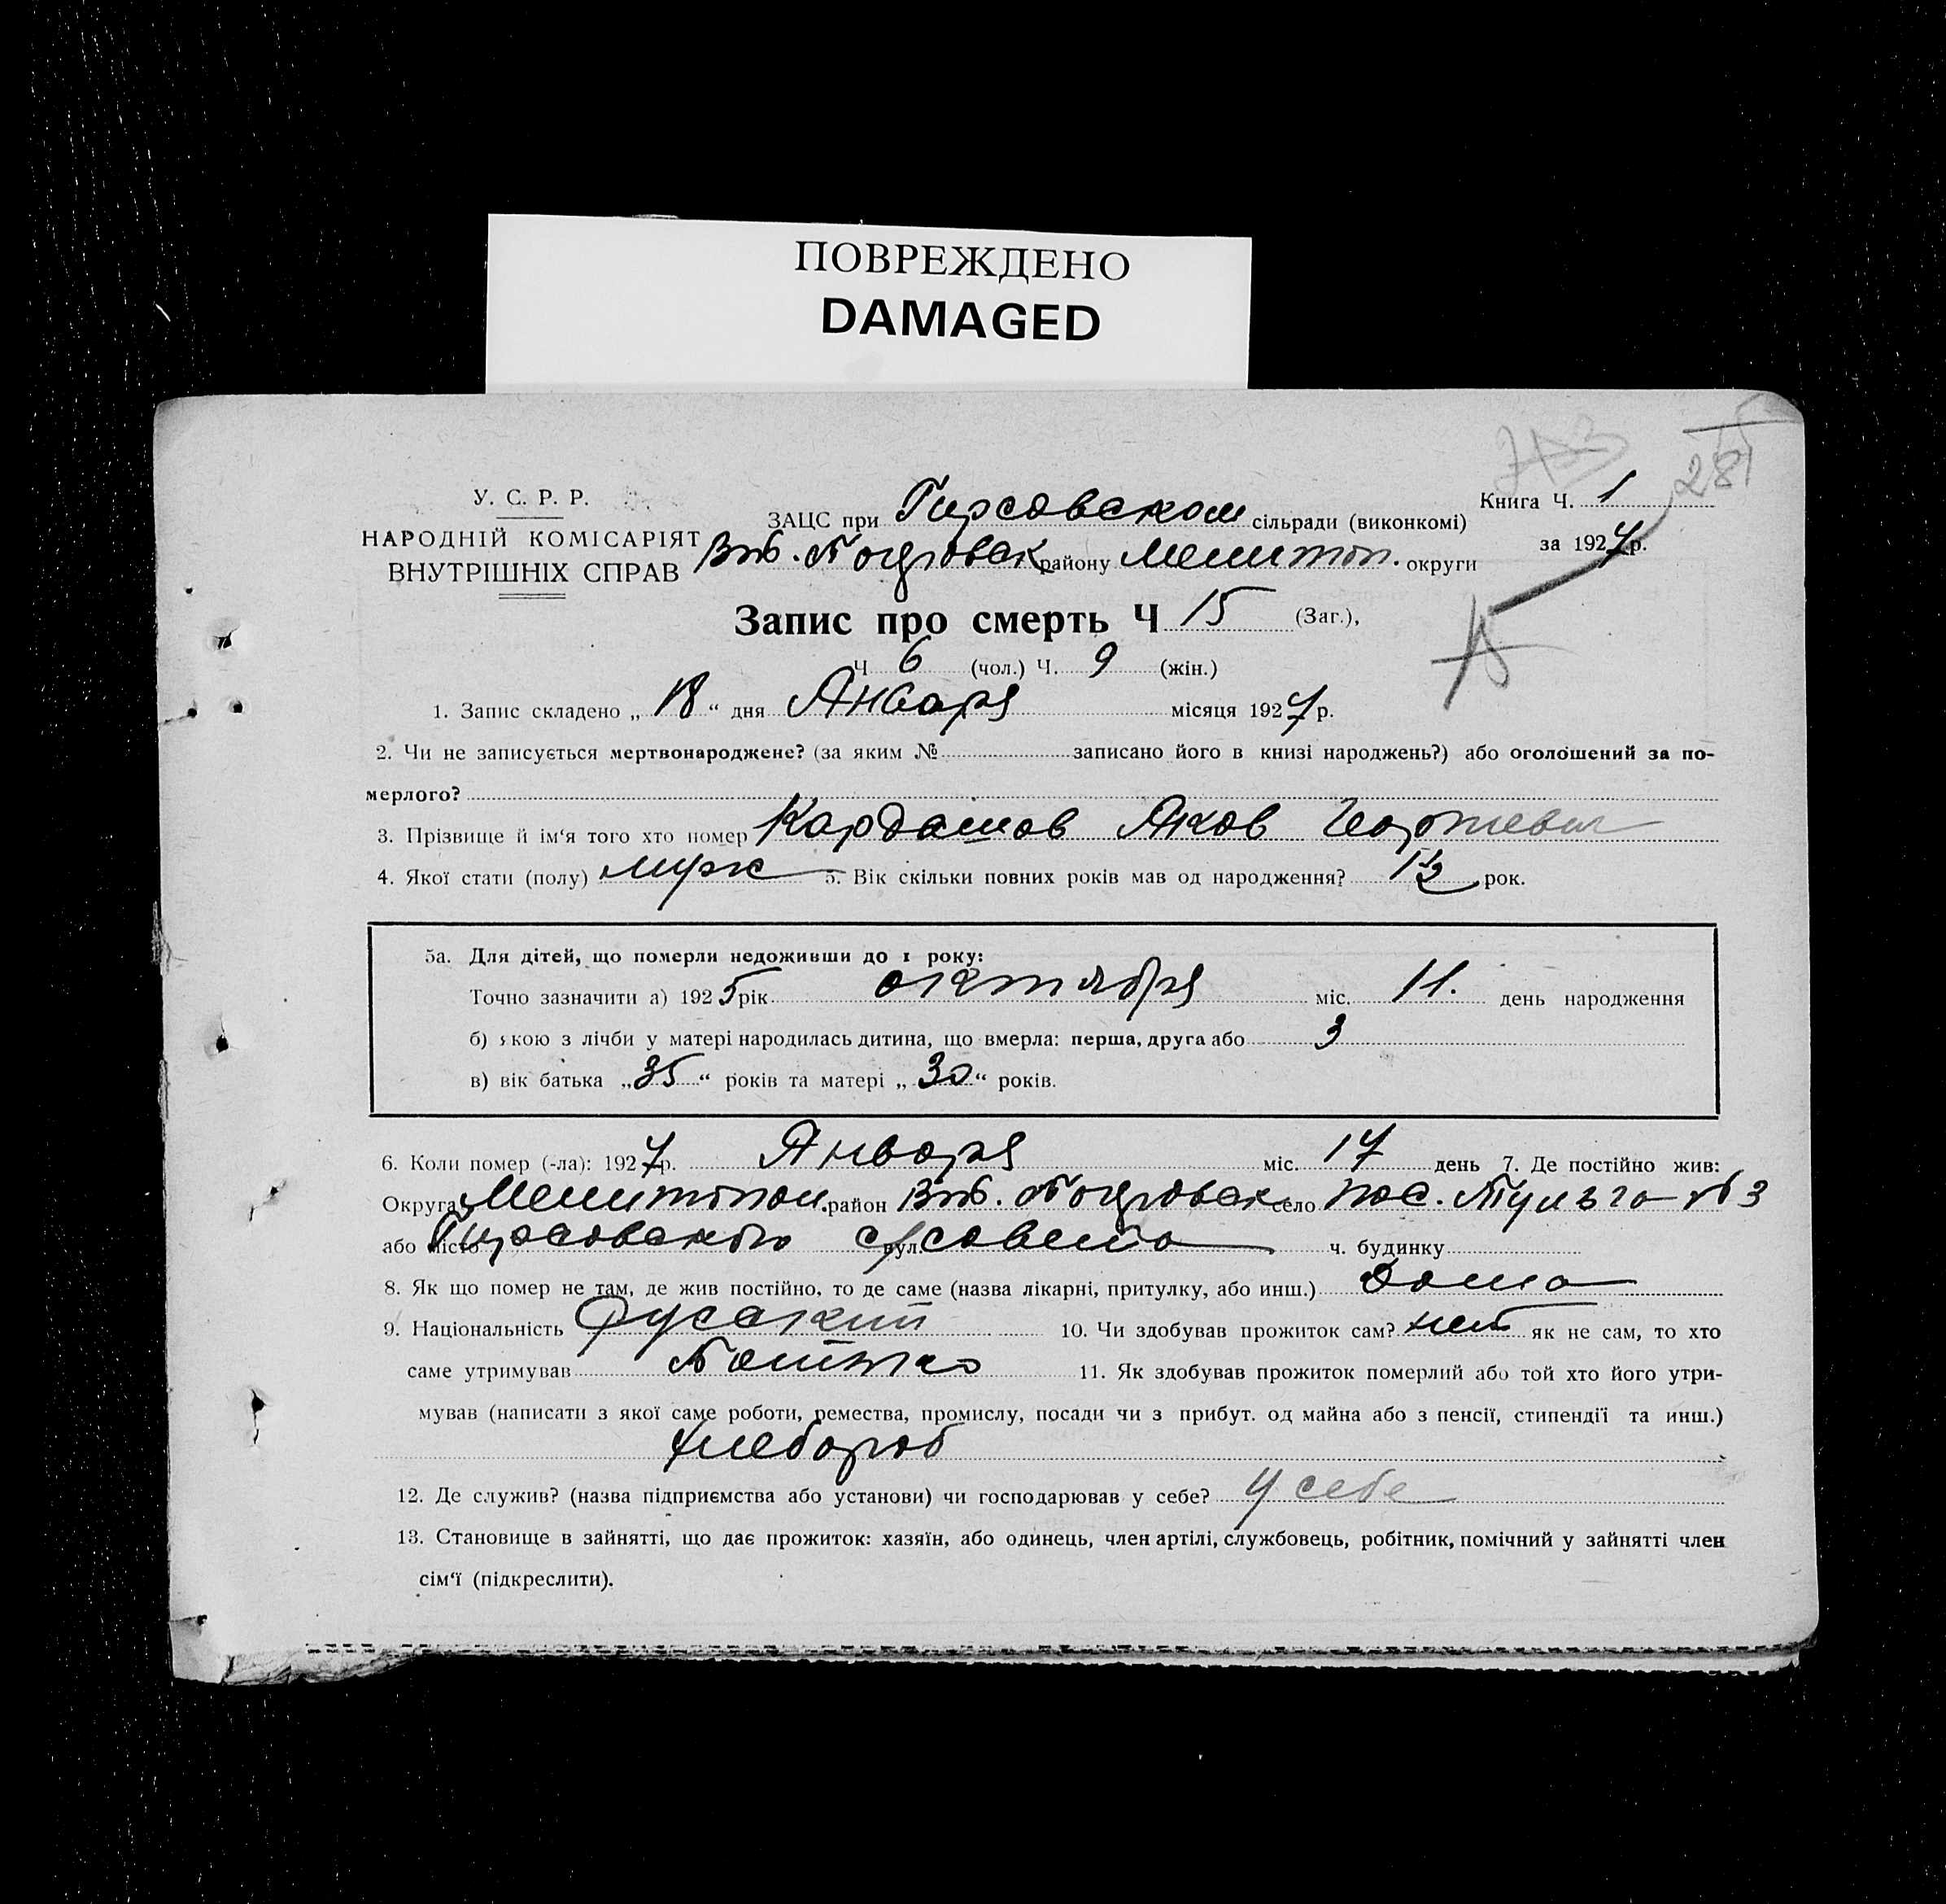 ПОВРЕЖДЕНО
DAMAGED
281
У. С. Р. Р.
НАРОДНІЙ КОМІСАРІЯТ
ВНУТРІШНІХ СПРАВ
ЗАЦС при Гирсовском сільради (виконкомі)
Книга Ч. 1
району Мелитоп. округи
за 1927 р.
Запис про смерть Ч 15 (Заг.),
Ч 6 (чол.) Ч. 9 (жін.)
15
1. Запис складено „ 18 “ дня Января місяця 1927 р.
2. Чи не записується мертвонароджене? (за яким № записано його в книзі народжень?) або оголошений за по-
мерлого?
3. Прізвище й ім‘я того хто помер Кардашов Яков Георгиевич
4. Якої стати (полу) муж 5. Вік скільки повних років мав од народження? рок.
5а. Для дітей, що померли недоживши до 1 року:
Точно зазначити а) 1925 рік октября міс. 11. день народження
б) якою з лічби у матері народилась дитина, що вмерла: перша, друга або 3
в) вік батька „ 35 “ років та матері „ 30 “ років.
6. Коли помер (-ла): 1927 р. Января міс. 17 день 7. Де постійно жив:
Округа Мелитопол. район село пос. №3
або місто Гирсовского с/совета вул. ч. будинку
8. Як що помер не там, де жив постійно, то де саме (назва лікарні, притулку, або инш.) Дома
9. Національність Русский 10. Чи здобував прожиток сам? нет як не сам, то хто
саме утримував Батько 11. Як здобував прожиток померлий або той хто його утри-
мував (написати з якої саме роботи, ремества, промислу, посади чи з прибут. од майна або з пенсії, стипендії та инш.)
хлебороб
12. Де служив? (назва підприємства або установи) чи господарював у себе? У себе
13. Становище в зайнятті, що дає прожиток: хазяїн, або одинець, член артілі, службовець, робітник, помічний у зайнятті член
сім‘ї (підкреслити).